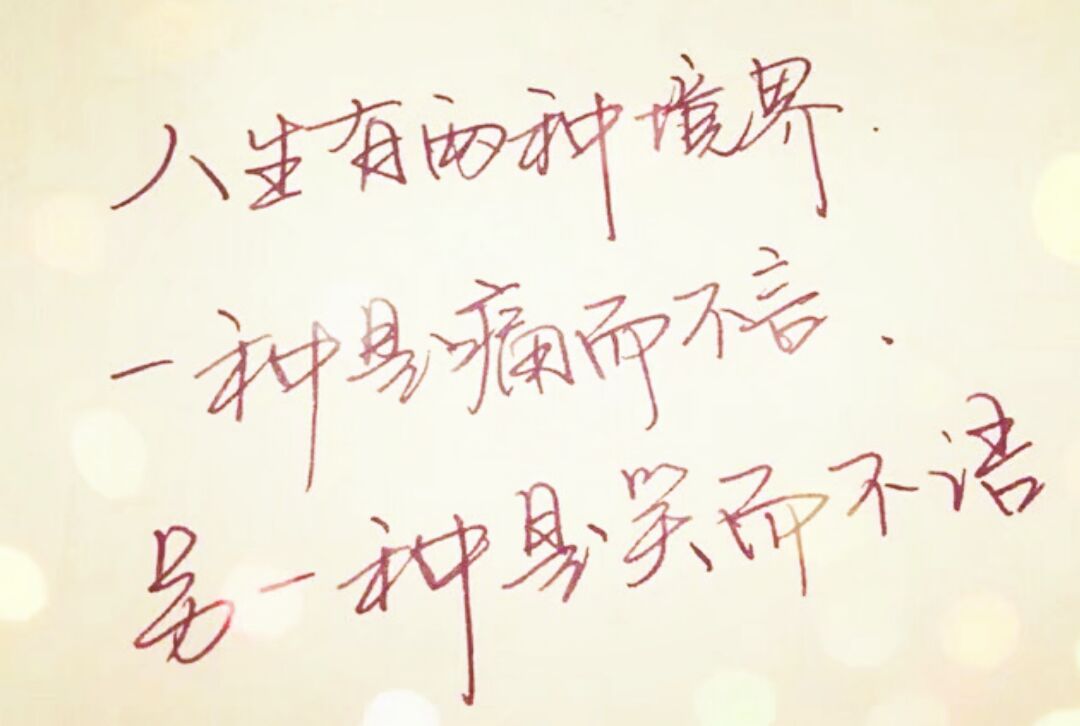 人生有两种境界.
一种是痛而不言.
另一种是笑而不语